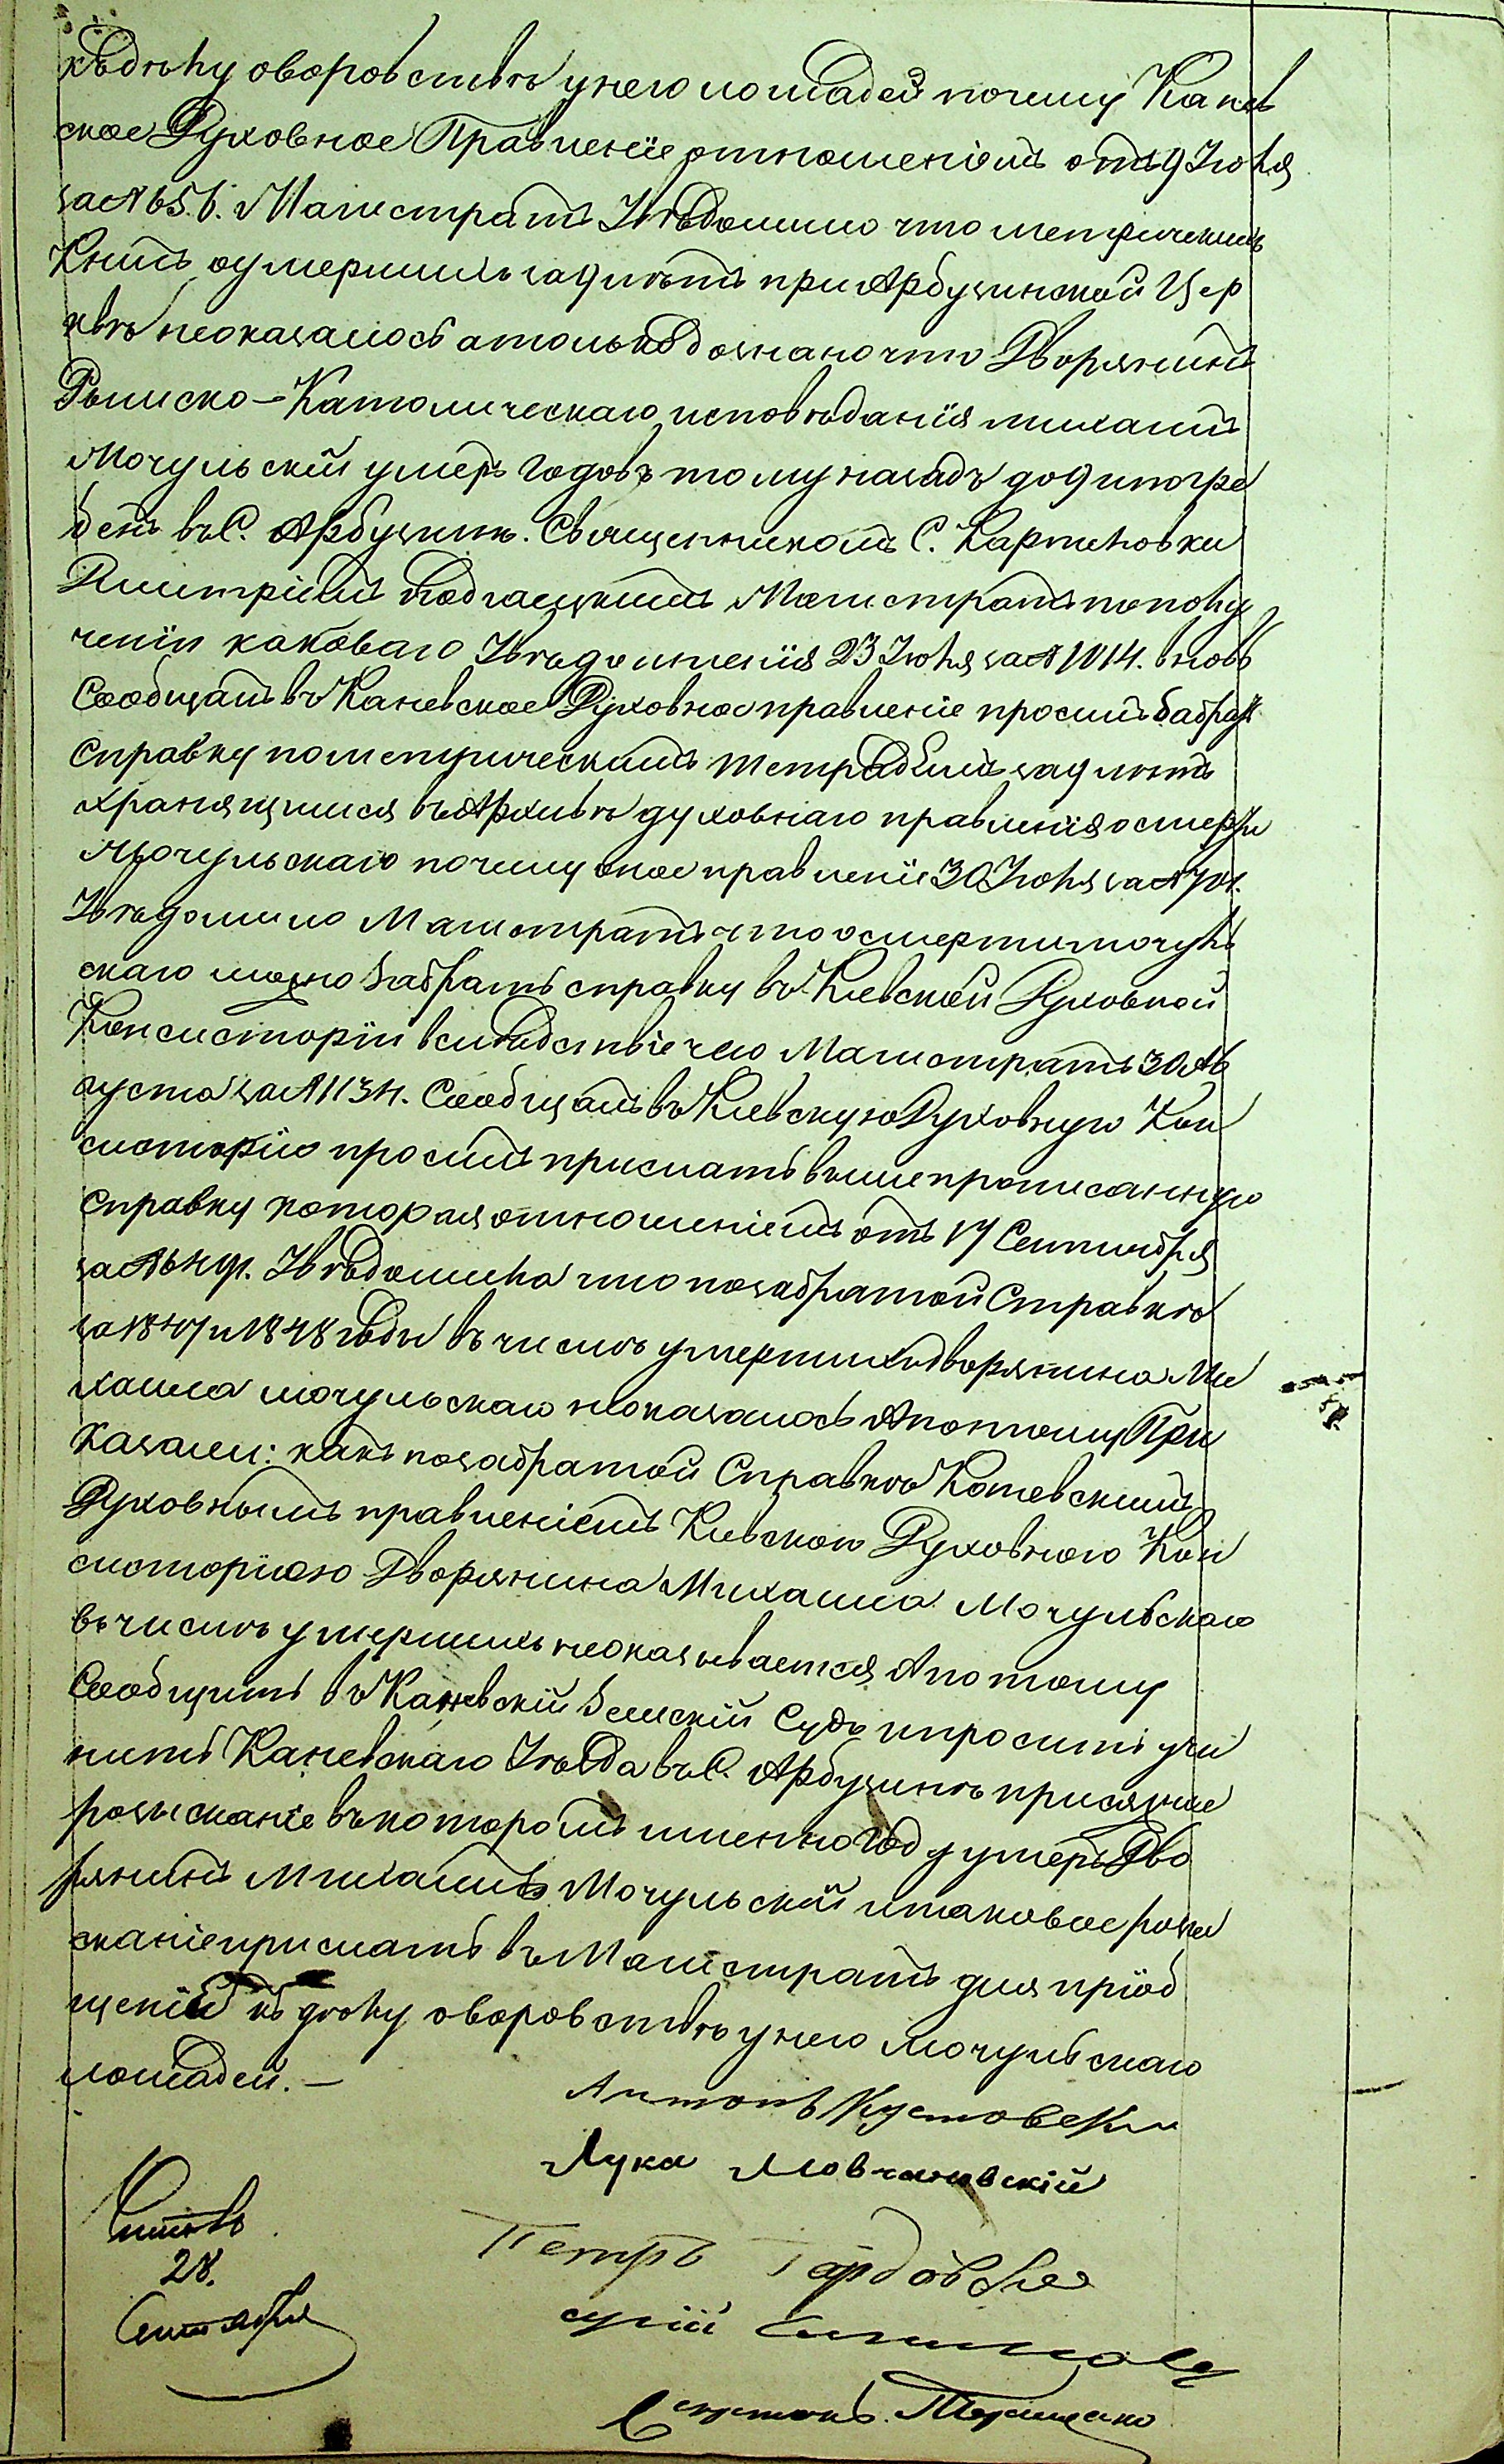 къ дѣлу о воровствѣ у него лошадей почему Канев
ское Духовное Правленіе отношеніемъ отъ 9 Іюля
за № 656. Магистратъ Увѣдомило что метрическихъ
Книгъ о умершихъ за 9 лѣтъ при Арбузинской Цер
квѣ неоказалось а только дознано что Дворянинъ
Рымско-Католическаго исповѣданія михаилъ
Мочульскій умеръ годовъ тому назадъ до 9 и погре
бенъ въ С. Арбузинѣ. Священникомъ С. Мартиновки
Дмитріемъ Подгаецкимъ Магистратъ по полу
ченіи каковаго Увѣдомленія 23 Іюля за № 1014. вновь
Сообщалъ въ Каневское Духовное правленіе просилъ забрать
Справку по метрическимъ тетрадямъ за 9 лѣтъ
хранящимся въ Архивѣ духовнаго правленія о смерти
Мочульскаго почему оное правленіе 30 Іюля за № 701.
Увѣдомило Магистратъ что о смерти мочуль
скаго можно забрать справку въ Кіевской Духовной
Консисторіи вслѣдствіе чего Магистратъ 30 Ав
густа за № 1134. Сообщалъ въ Кіевскую Духовную Кон
систорію просилъ прислать вышепрописанную
Справку которая отношеніемъ отъ 17 Сентября
за № Увѣдомила что по забратой Справкѣ
за 1847 и 1848 годы въ числѣ умершихъ дворянина Ми
хаила мочульскаго неоказалось А потому При
Казали: какъ по забратой Справкѣ Каневскимъ
Духовнымъ правленіемъ Кіевскою Духовною Кон
систоріею Дворянина Михаила Мочульскаго
въ числѣ умершихъ неоказывается А потому
Сообщить въ Каневскій Земскій Судъ и просить учи
нить Каневскаго Уѣзда въ С. Арбузинѣ присяжное
розысканіе въ которомъ именно году умеръ Дво
рянинъ Михаилъ Мочульскій и таковое розы
сканіе прислать въ Магистратъ для пріоб
щенія къ дѣлу о воровствѣ у него Мочульскаго
лошадей. —
Антонъ Кустовскі
Лука Мовчановскій
Петръ
28.
Сентября